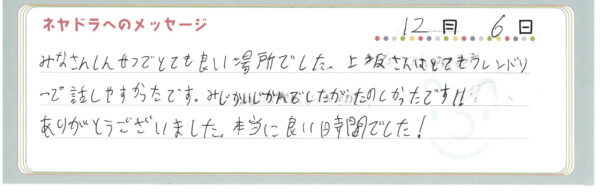 ネヤドラへのメッセージ 12月 6日
みなさんしんせつでとても良い場所でした。上坂さんはとてもフレンドリ
ーで話しやすかったです。みじかいじかんでしたがたのしかったです!!
ありがとうございました。本当に良い時間でした!